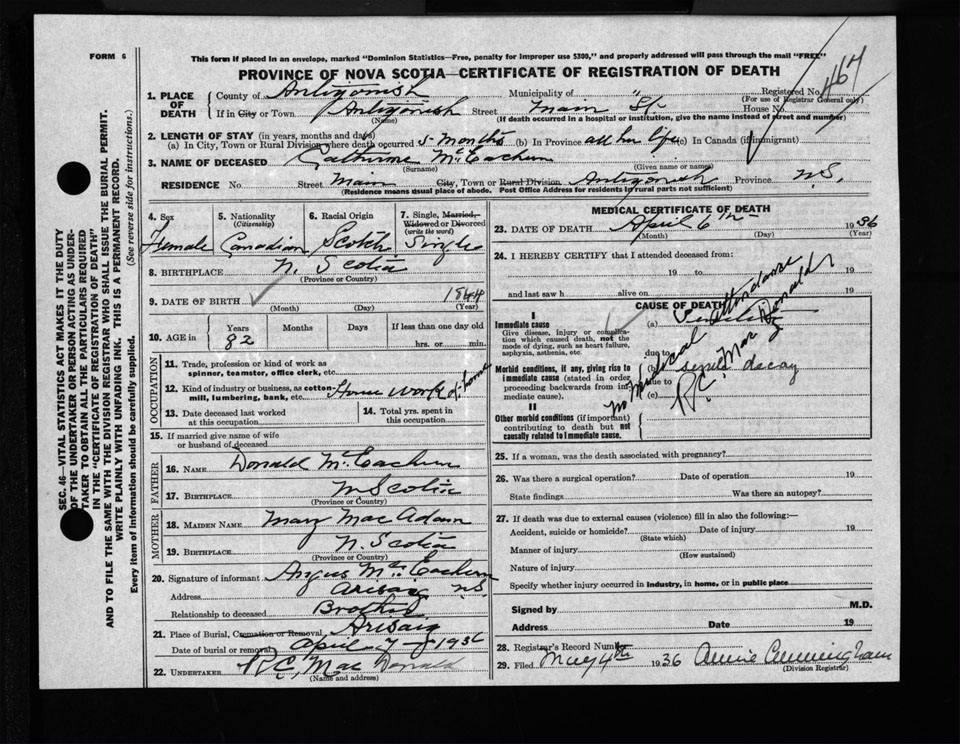 FORM 6
This form if placed in an envelope, marked "Dominion Statistics—Free, penalty for improper use $300," and properly addressed will pass through the mail "FREE"
PROVINCE OF NOVA SCOTIA—CERTIFICATE OF REGISTRATION OF DEATH
467
1. PLACE OF DEATH County of Antigonish Municipality of " Registered No.
(For use of Registrar General only)
If in City or Town Antigonish Street Main St. House No.
(Name) (If death occurred in a hospital or institution, give the name instead of street and number)
2. LENGTH OF STAY (in years, months and days)
(a) In City, Town or Rural Division where death occurred 5 months (b) In Province all her life (c) In Canada (if immigrant)
3. NAME OF DECEASED Catherine McEachern
(Surname) (Given name or names)
RESIDENCE No. Street Main City, Town or Rural Division Antigonish Province N.S.
(Residence means usual place of abode. Post Office Address for residents in rural parts not sufficient)
4. Sex 5. Nationality (Citizenship) 6. Racial Origin 7. Single, Married, Widowed or Divorced (write the word)
Female Canadian Scotch Single
8. BIRTHPLACE N. Scotia
(Province or Country)
9. DATE OF BIRTH 1844
(Month) (Day) (Year)
10. AGE in Years Months Days If less than one day old
82 hrs. or min.
OCCUPATION
11. Trade, profession or kind of work as spinner, teamster, office clerk, etc.
12. Kind of industry or business, as cotton-mill, lumbering, bank, etc. House work at home
13. Date deceased last worked at this occupation 14. Total yrs. spent in this occupation
15. If married give name of wife or husband of deceased
FATHER
16. NAME Donald McEachern
17. BIRTHPLACE N Scotia
(Province or Country)
MOTHER
18. MAIDEN NAME Mary MacAdam
19. BIRTHPLACE N. Scotia
(Province or Country)
20. Signature of informant Angus McEachern
Address Arisaig N.S.
Relationship to deceased Brother
21. Place of Burial, Cremation or Removal Arisaig
Date of burial or removal April 7 1936
22. UNDERTAKER R.C. MacDonald
(Name and address)
MEDICAL CERTIFICATE OF DEATH
23. DATE OF DEATH April 6th 1936
(Month) (Day) (Year)
24. I HEREBY CERTIFY that I attended deceased from:
19 to 19
and last saw h alive on 19
CAUSE OF DEATH
I
Immediate cause (a)
Give disease, injury or complication which caused death, not the mode of dying, such as heart failure, asphyxia, asthenia, etc.
due to
Morbid conditions, if any, giving rise to immediate cause (stated in order proceeding backwards from immediate cause). (b) senile decay
due to
(c)
II
Other morbid conditions (if important) contributing to death but not causally related to immediate cause.
No Medical attendance
R.C. MacDonald
25. If a woman, was the death associated with pregnancy?
26. Was there a surgical operation? Date of operation 19
State findings Was there an autopsy?
27. If death was due to external causes (violence) fill in also the following:—
Accident, suicide or homicide? Date of injury 19
(State which)
Manner of injury
(How sustained)
Nature of injury
Specify whether injury occurred in industry, in home, or in public place
Signed by M.D.
Address Date 19
28. Registrar's Record Number
29. Filed May 4th 1936 Annie Cunningham
(Division Registrar)
SEC. 46—VITAL STATISTICS ACT MAKES IT THE DUTY
OF THE UNDERTAKER OR PERSON ACTING AS UNDER-
TAKER TO OBTAIN ALL THE PARTICULARS REQUIRED
IN THE "CERTIFICATE OF REGISTRATION OF DEATH"
AND TO FILE THE SAME WITH THE DIVISION REGISTRAR WHO SHALL ISSUE THE BURIAL PERMIT.
WRITE PLAINLY WITH UNFADING INK. THIS IS A PERMANENT RECORD.
Every item of information should be carefully supplied. (See reverse side for instructions.)